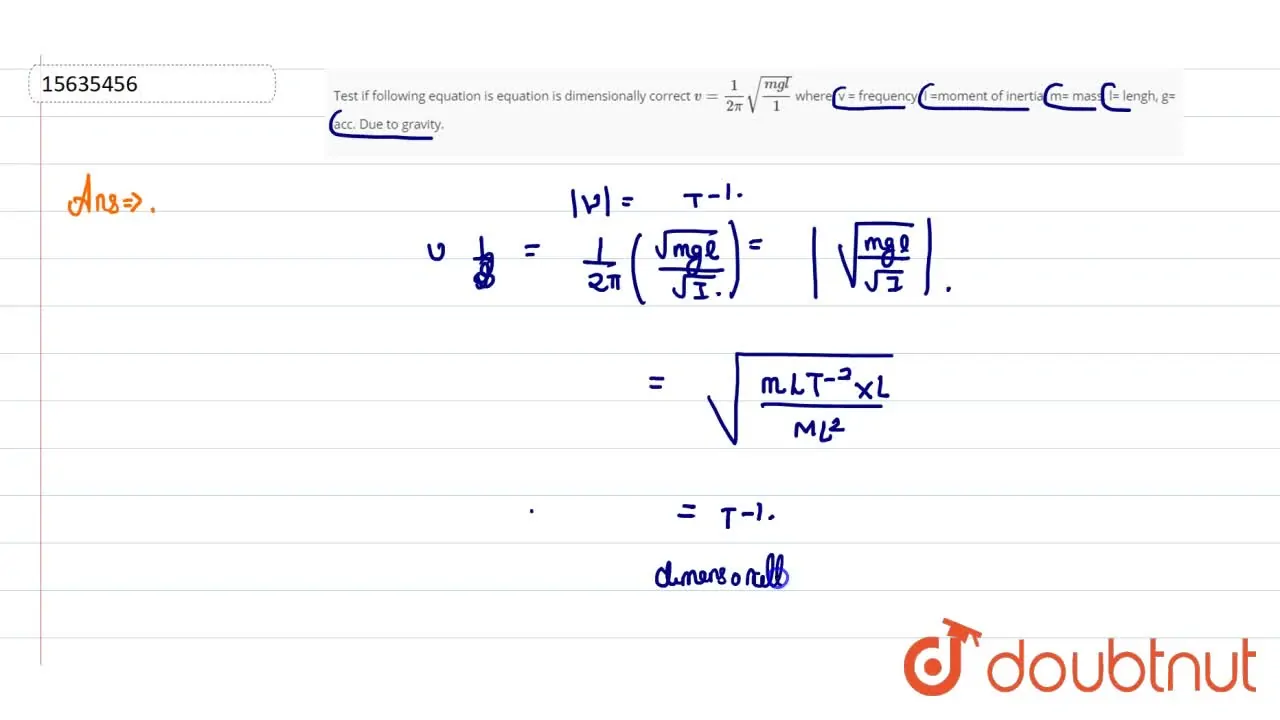 15635456
Test if following equation is equation is dimensionally correct v = 1/2π √mgl/1 where v = frequency l =moment of inertia m= mass l= lengh, g=
acc. Due to gravity.
Ans⇒.
|ν| = T-1.
υ = 1/2π (√mgl/√I.) = |√mgl/√I|.
= √mLT-2×L/ML2
= T-1.
doubtnut